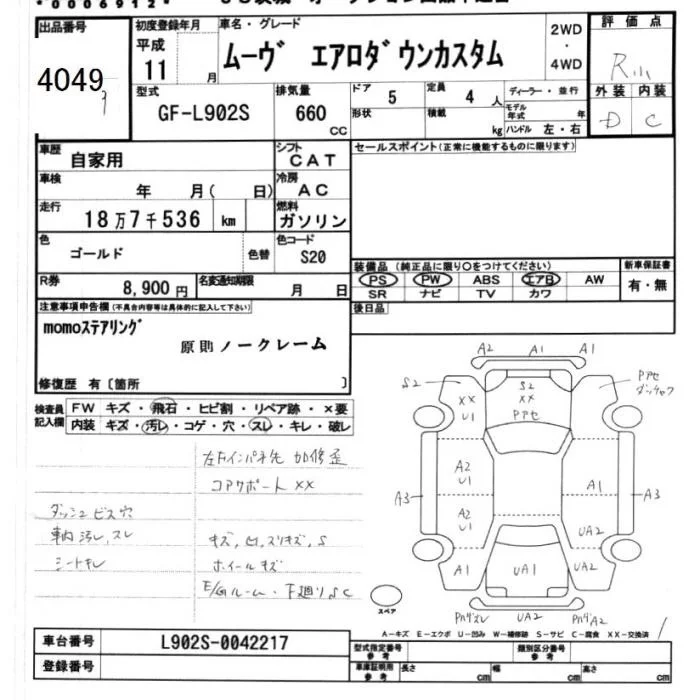 *0006912*
出品番号 初度登録年月 車名・グレード 評価点
4049 平成 11 月 ムーヴ エアロダウンカスタム 2WD ・ 4WD R
型式 排気量 ドア 5 定員 4 人 ディーラー・並行 外装 内装
GF-L902S 660 CC 形状 積載 kg モデル年式 年 ハンドル 左・右 D C
車歴 自家用 シフト CAT セールスポイント(正常に機能するものに限ります)
車検 年 月( 日) 冷房 AC
走行 18万7千536 km 燃料 ガソリン
色 ゴールド 色替 色コード S20
装備品(純正品に限り○をつけてください) 新車保証書
R券 8,900円 名変通知期限 月 日 PS PW ABS エアB AW 有・無
SR ナビ TV カワ
注意事項申告欄(不具合内容等は具体的に記入して下さい) 後日品
momoステアリング
原則ノークレーム
修復歴 有〔箇所 〕
検査員記入欄 FW キズ・飛石・ヒビ割・リペア跡・×要
内装 キズ・汚レ・コゲ・穴・スレ・キレ・破レ
左FインパネL先 加修歪
コアサポート XX
ダッシュ ビス穴
車内汚レ、スレ
キズ、凹、スリキズ、S
シートキレ
ホイールキズ
E/Gルーム・下廻りSC
A2 A1 A1
S2 XX U1 S2 XX Pアセ Pアセ
A2 U1
A3 A1 A3
A2 U1 UA2
A1 UA1 UA2
スペア UA2
A-キズ E-エクボ U-凹み W-補修跡 S-サビ C-腐食 XX-交換済
車台番号 L902S-0042217 型式指定番号 参考 類別区分番号 参考
登録番号 車庫証明用 参考 長さ cm 幅 cm 高さ cm